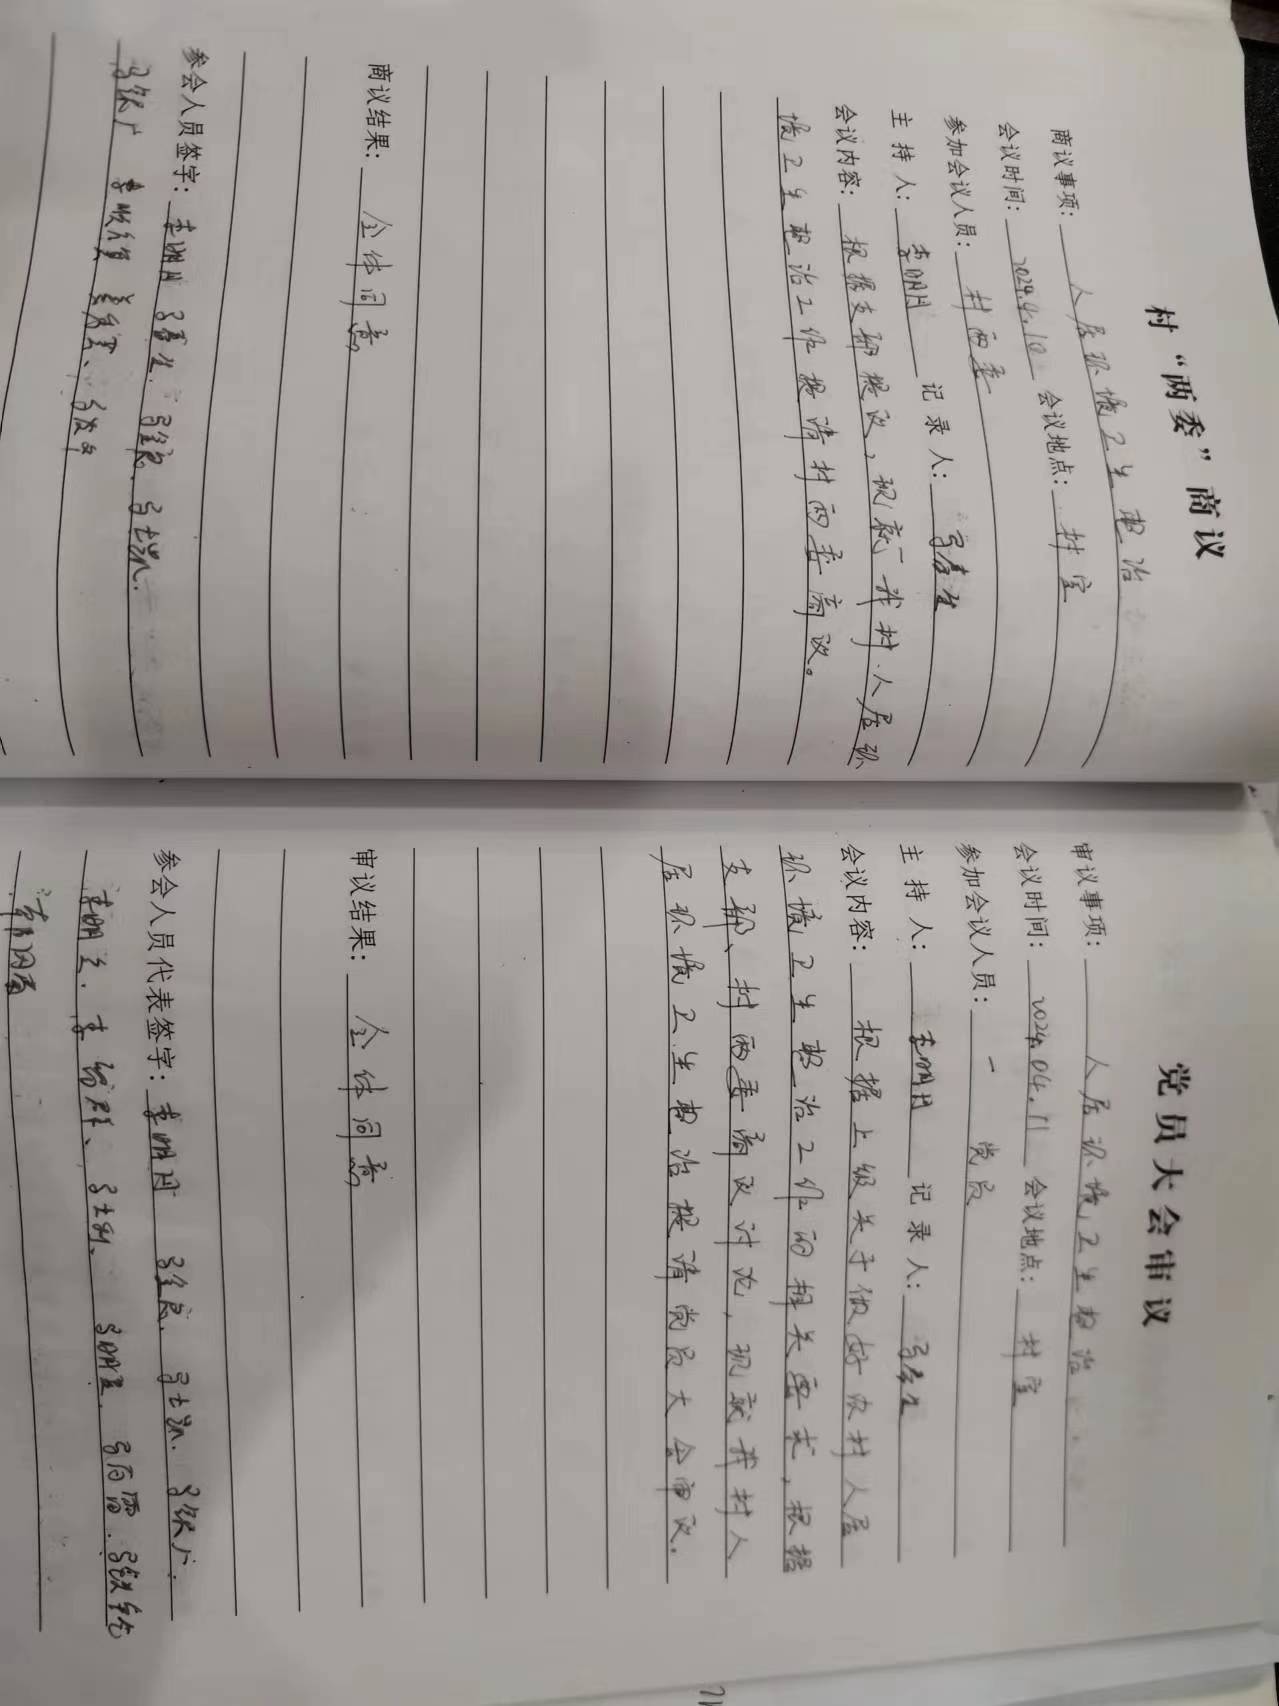 村“两委”商议
商议事项：人居环境卫生整治
会议时间：2024.4.10 会议地点：村室
参加会议人员：村两委
主持人：李明月 记录人：弓春生
会议内容：根据支部提议，现就我村人居环
境卫生整治工作提请村两委商议。
商议结果：全体同意
参会人员签字：李明月
党员大会审议
审议事项：人居环境卫生整治
会议时间：2024.04.11 会议地点：村室
参加会议人员：党员
主持人：李明月 记录人：弓春生
会议内容：根据上级关于做好农村人居
环境卫生整治工作的相关要求，根据
支部、村两委商议讨论，现就我村人
居环境卫生整治提请党员大会审议。
审议结果：全体同意
参会人员代表签字：李明月